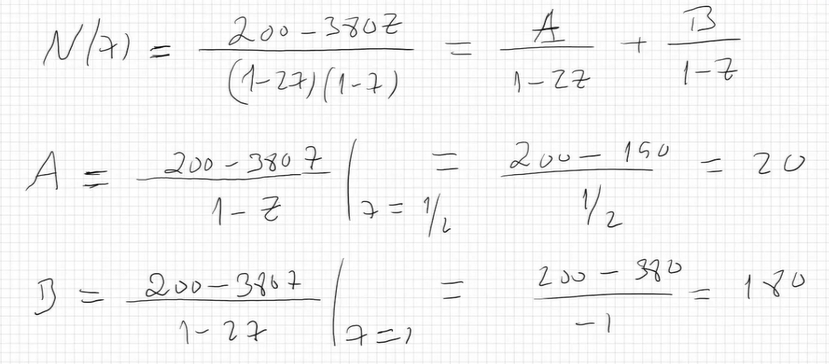 N(z) = (200 - 380z) / ((1-2z)(1-z)) = A / (1-2z) + B / (1-z)
A = (200 - 380z) / (1-z) |_{z = 1/2} = (200 - 190) / (1/2) = 20
B = (200 - 380z) / (1-2z) |_{z=1} = (200 - 380) / (-1) = 180